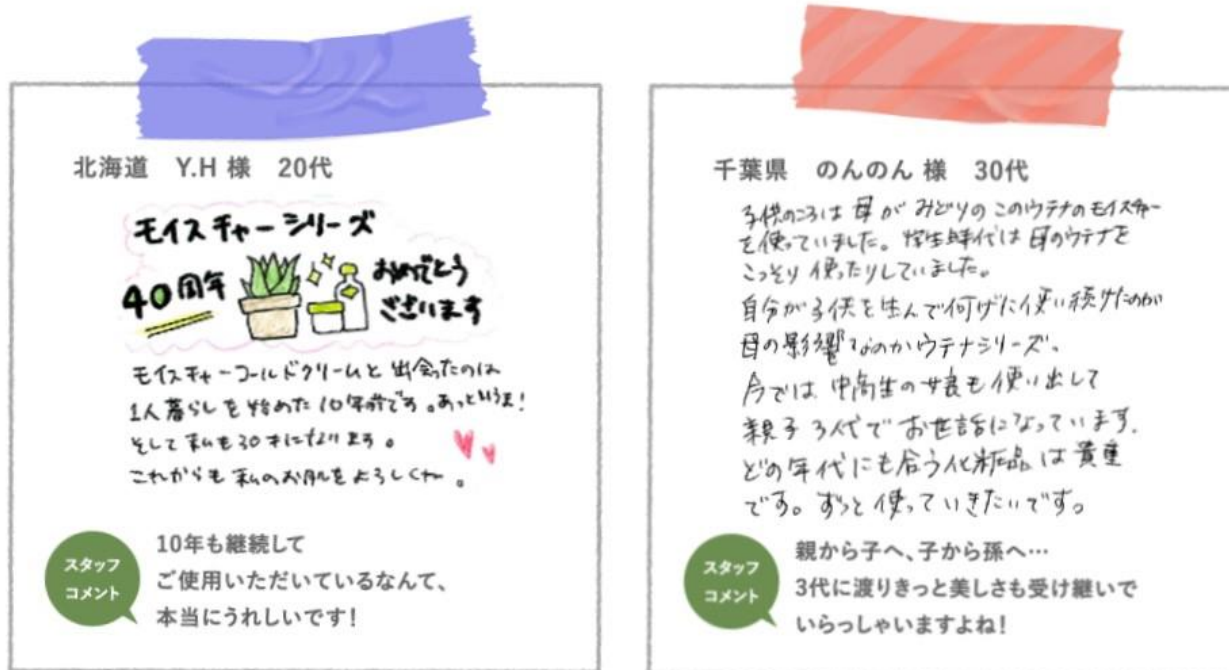 北海道 Y.H 様 20代
モイスチャーシリーズ
40周年
おめでとう
ございます
モイスチャーコールドクリームと出会ったのは
1人暮らしを始めた10年前です。あっという間!
そして私も30才になります。
これからも私のお肌をよろしくね。
スタッフ
コメント
10年も継続して
ご使用いただいているなんて、
本当にうれしいです!
千葉県 のんのん 様 30代
子供のころは母がみどりのこのウテナのモイスチャー
を使っていました。学生時代は母のウテナを
こっそり使ったりしていました。
自分が子供を生んで何げに使い続けたのが
母の影響なのかウテナシリーズ、
今では中高生の娘も使い出して
親子3代でお世話になっています。
どの年代にも合う化粧品は貴重
です。ずっと使っていきたいです。
スタッフ
コメント
親から子へ、子から孫へ…
3代に渡りきっと美しさも受け継いで
いらっしゃいますよね!